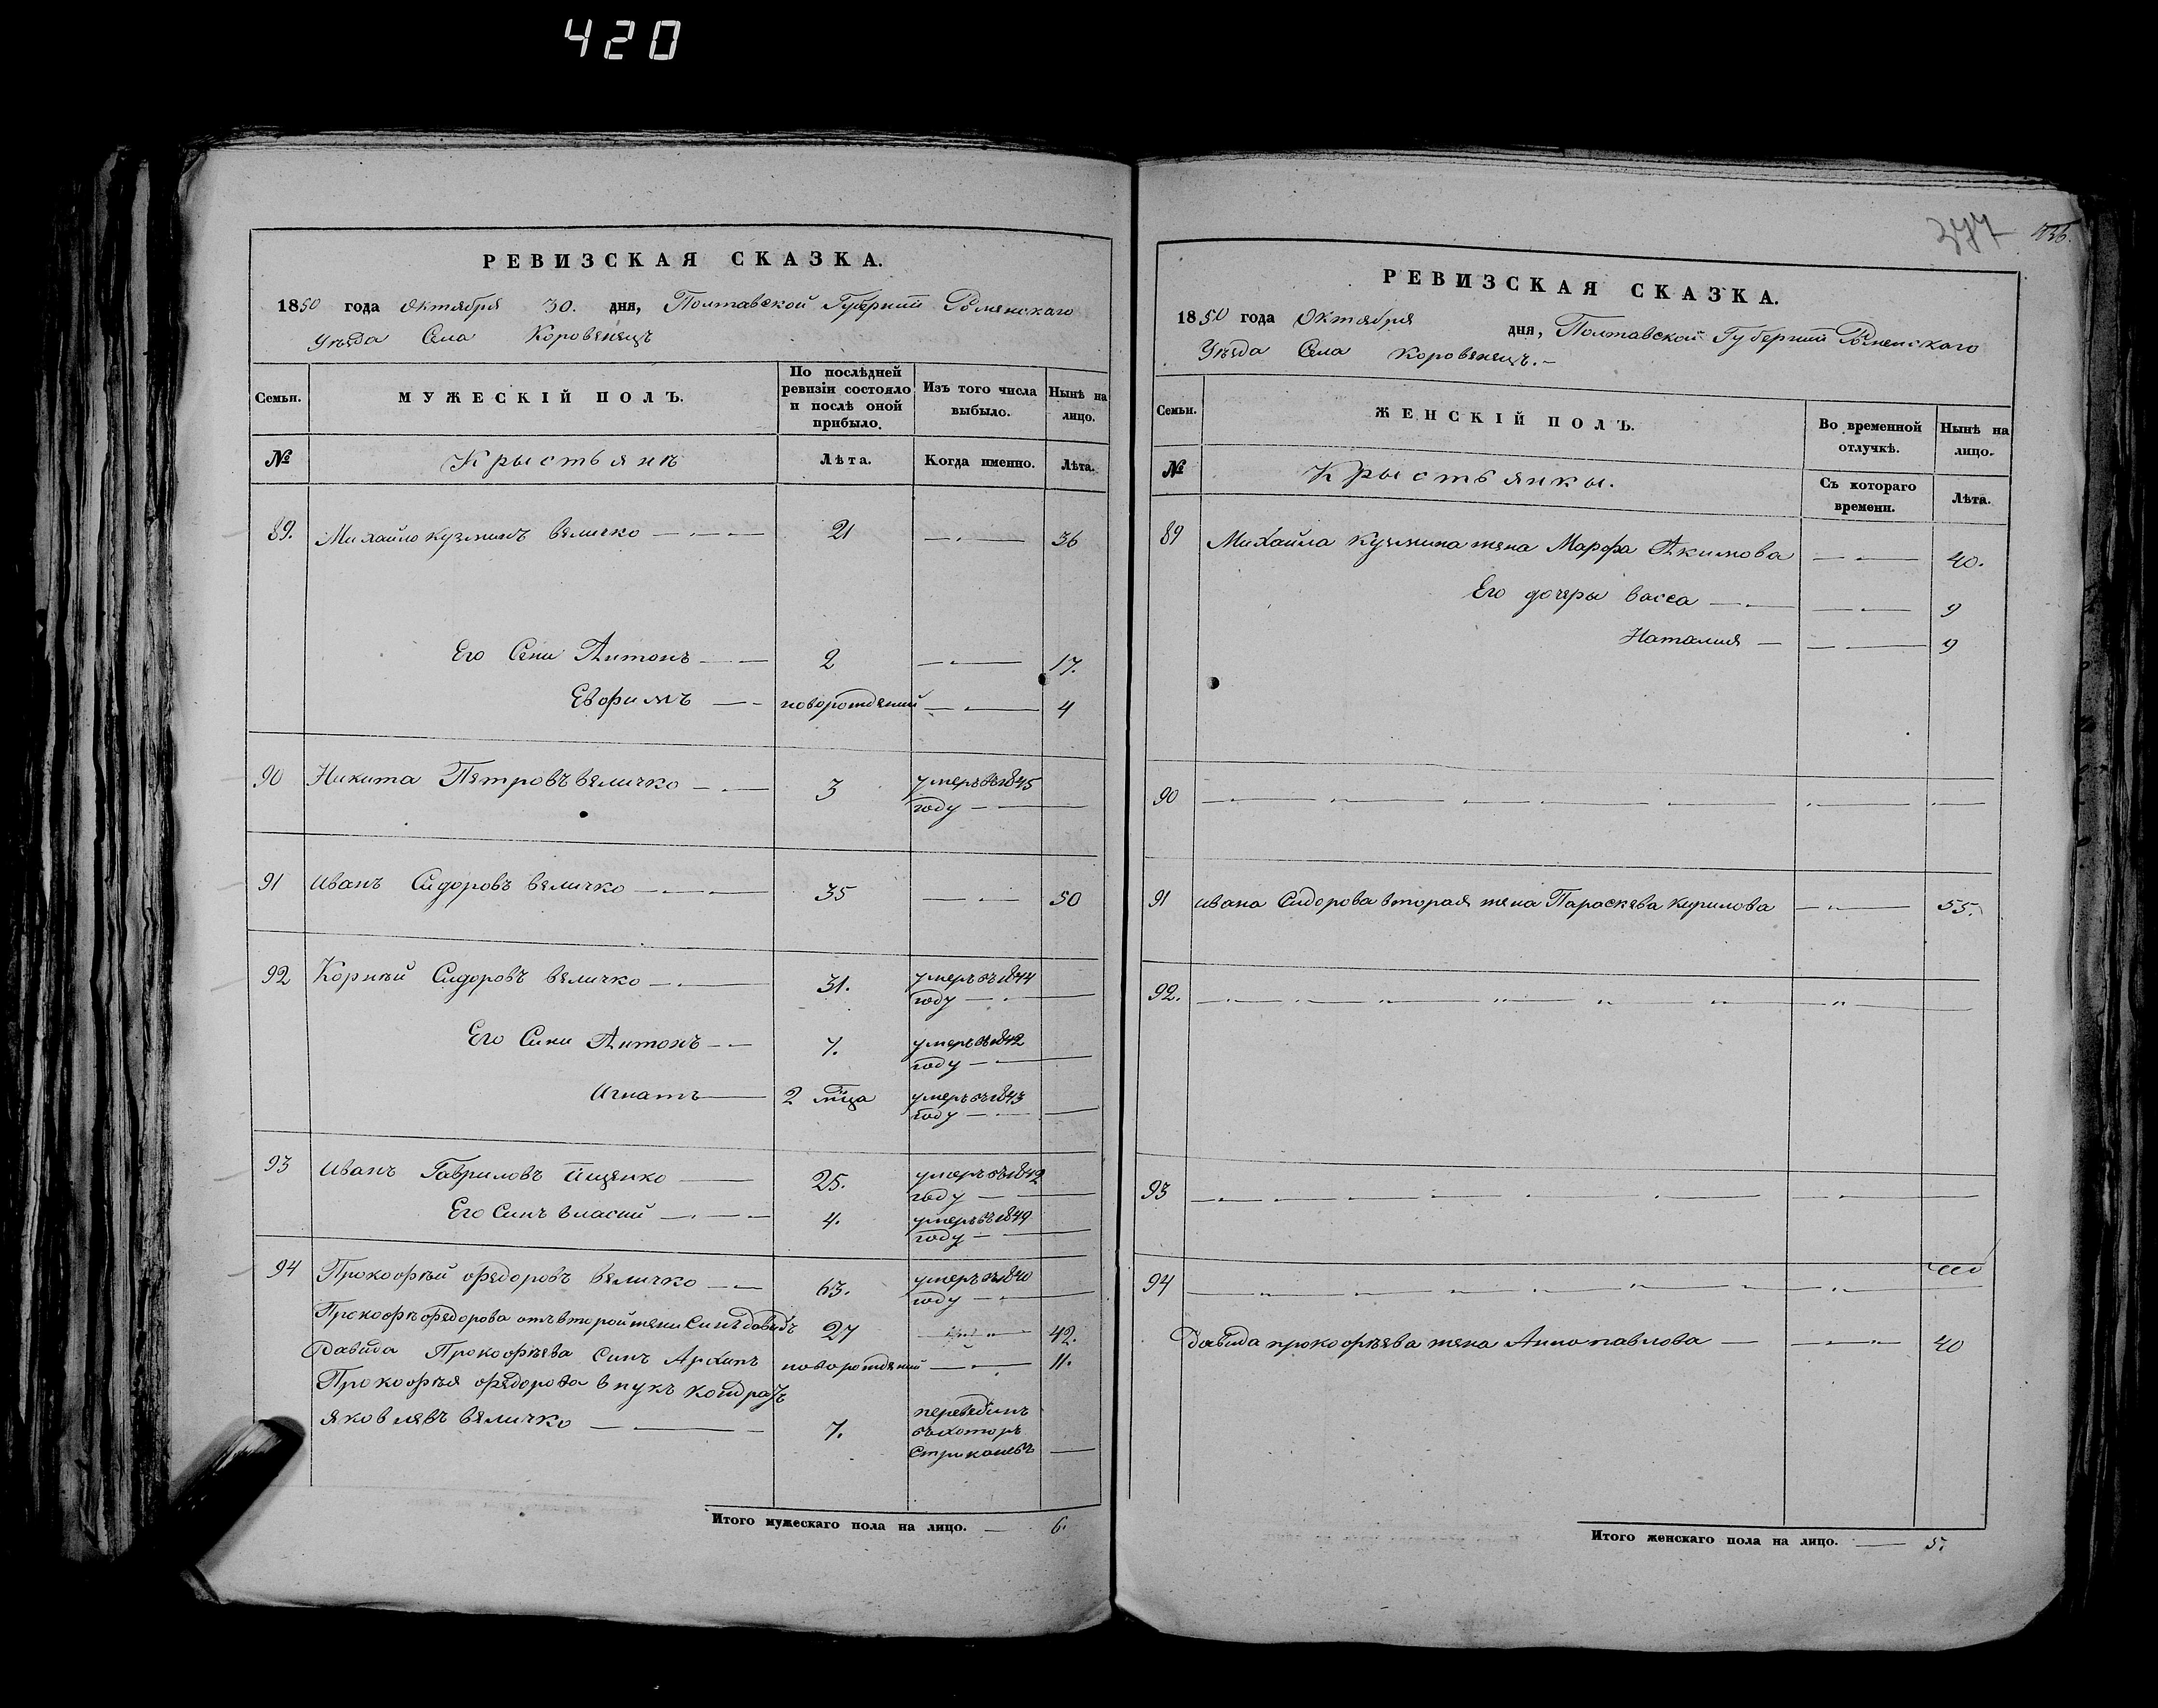 420
РЕВИЗСКАЯ СКАЗКА.
1850 года Октября 30. дня, Полтавской Губерніи Роменскаго
Уѣзда Села Коровенецъ
Семьи.
МУЖЕСКІЙ ПОЛЪ.
По послѣдней ревизіи состояло и послѣ оной прибыло.
Изъ того числа выбыло.
Нынѣ на лицо.
№ Крыстьянъ Лѣта. Когда именно. Лѣта.
89. Михайло Кузминъ Величко 21 36
Его Сини Антонъ 2 17.
Евфимъ новорожденій 4
90 Никита Петровъ Величко 3 умеръ въ 1845
году
91 Иванъ Сидоровъ Величко 35 50
92 Корнѣй Сидоровъ Величко 31. умеръ въ 1844
году
Его Сини Антонъ 7. умеръ въ 1842
году
Игнатъ 2 мѣца умеръ въ 1843
году
93 Иванъ Гавриловъ Ищенко 25. умеръ въ 1842
году
Его Синъ Власий 4. умеръ въ 1849
году
94 Прокофѣй Федоровъ Величко 63. умеръ въ 1840
году
Прокофъ Федорова отъ второй жени Синъ Давидъ 27 42.
Давида Прокофѣева Синъ Архипъ новорожденій 11.
Прокофѣя Федорова внукъ Кондратъ
Яковлевъ Величко 7. перевединъ
въ хоторъ
Итого мужескаго пола на лицо. 6.
377
РЕВИЗСКАЯ СКАЗКА.
1850 года Октября дня, Полтавской Губерніи Роменскаго
Уѣзда Села Коровенецъ.
Семьи.
ЖЕНСКІЙ ПОЛЪ.
Во временной отлучкѣ.
Нынѣ на лицо.
№ Крыстьянкы. Съ котораго времени. Лѣта.
89 Михайла Кузмина жена Марфа Акимова 40.
Его дочеры Васса 9
Наталия 9
90
91 Ивана Сидорова вторая жена Параскева Кирилова 55.
92.
93
94
Давида Прокофѣева жена Анна Павлова 40
Итого женскаго пола на лицо. 5.